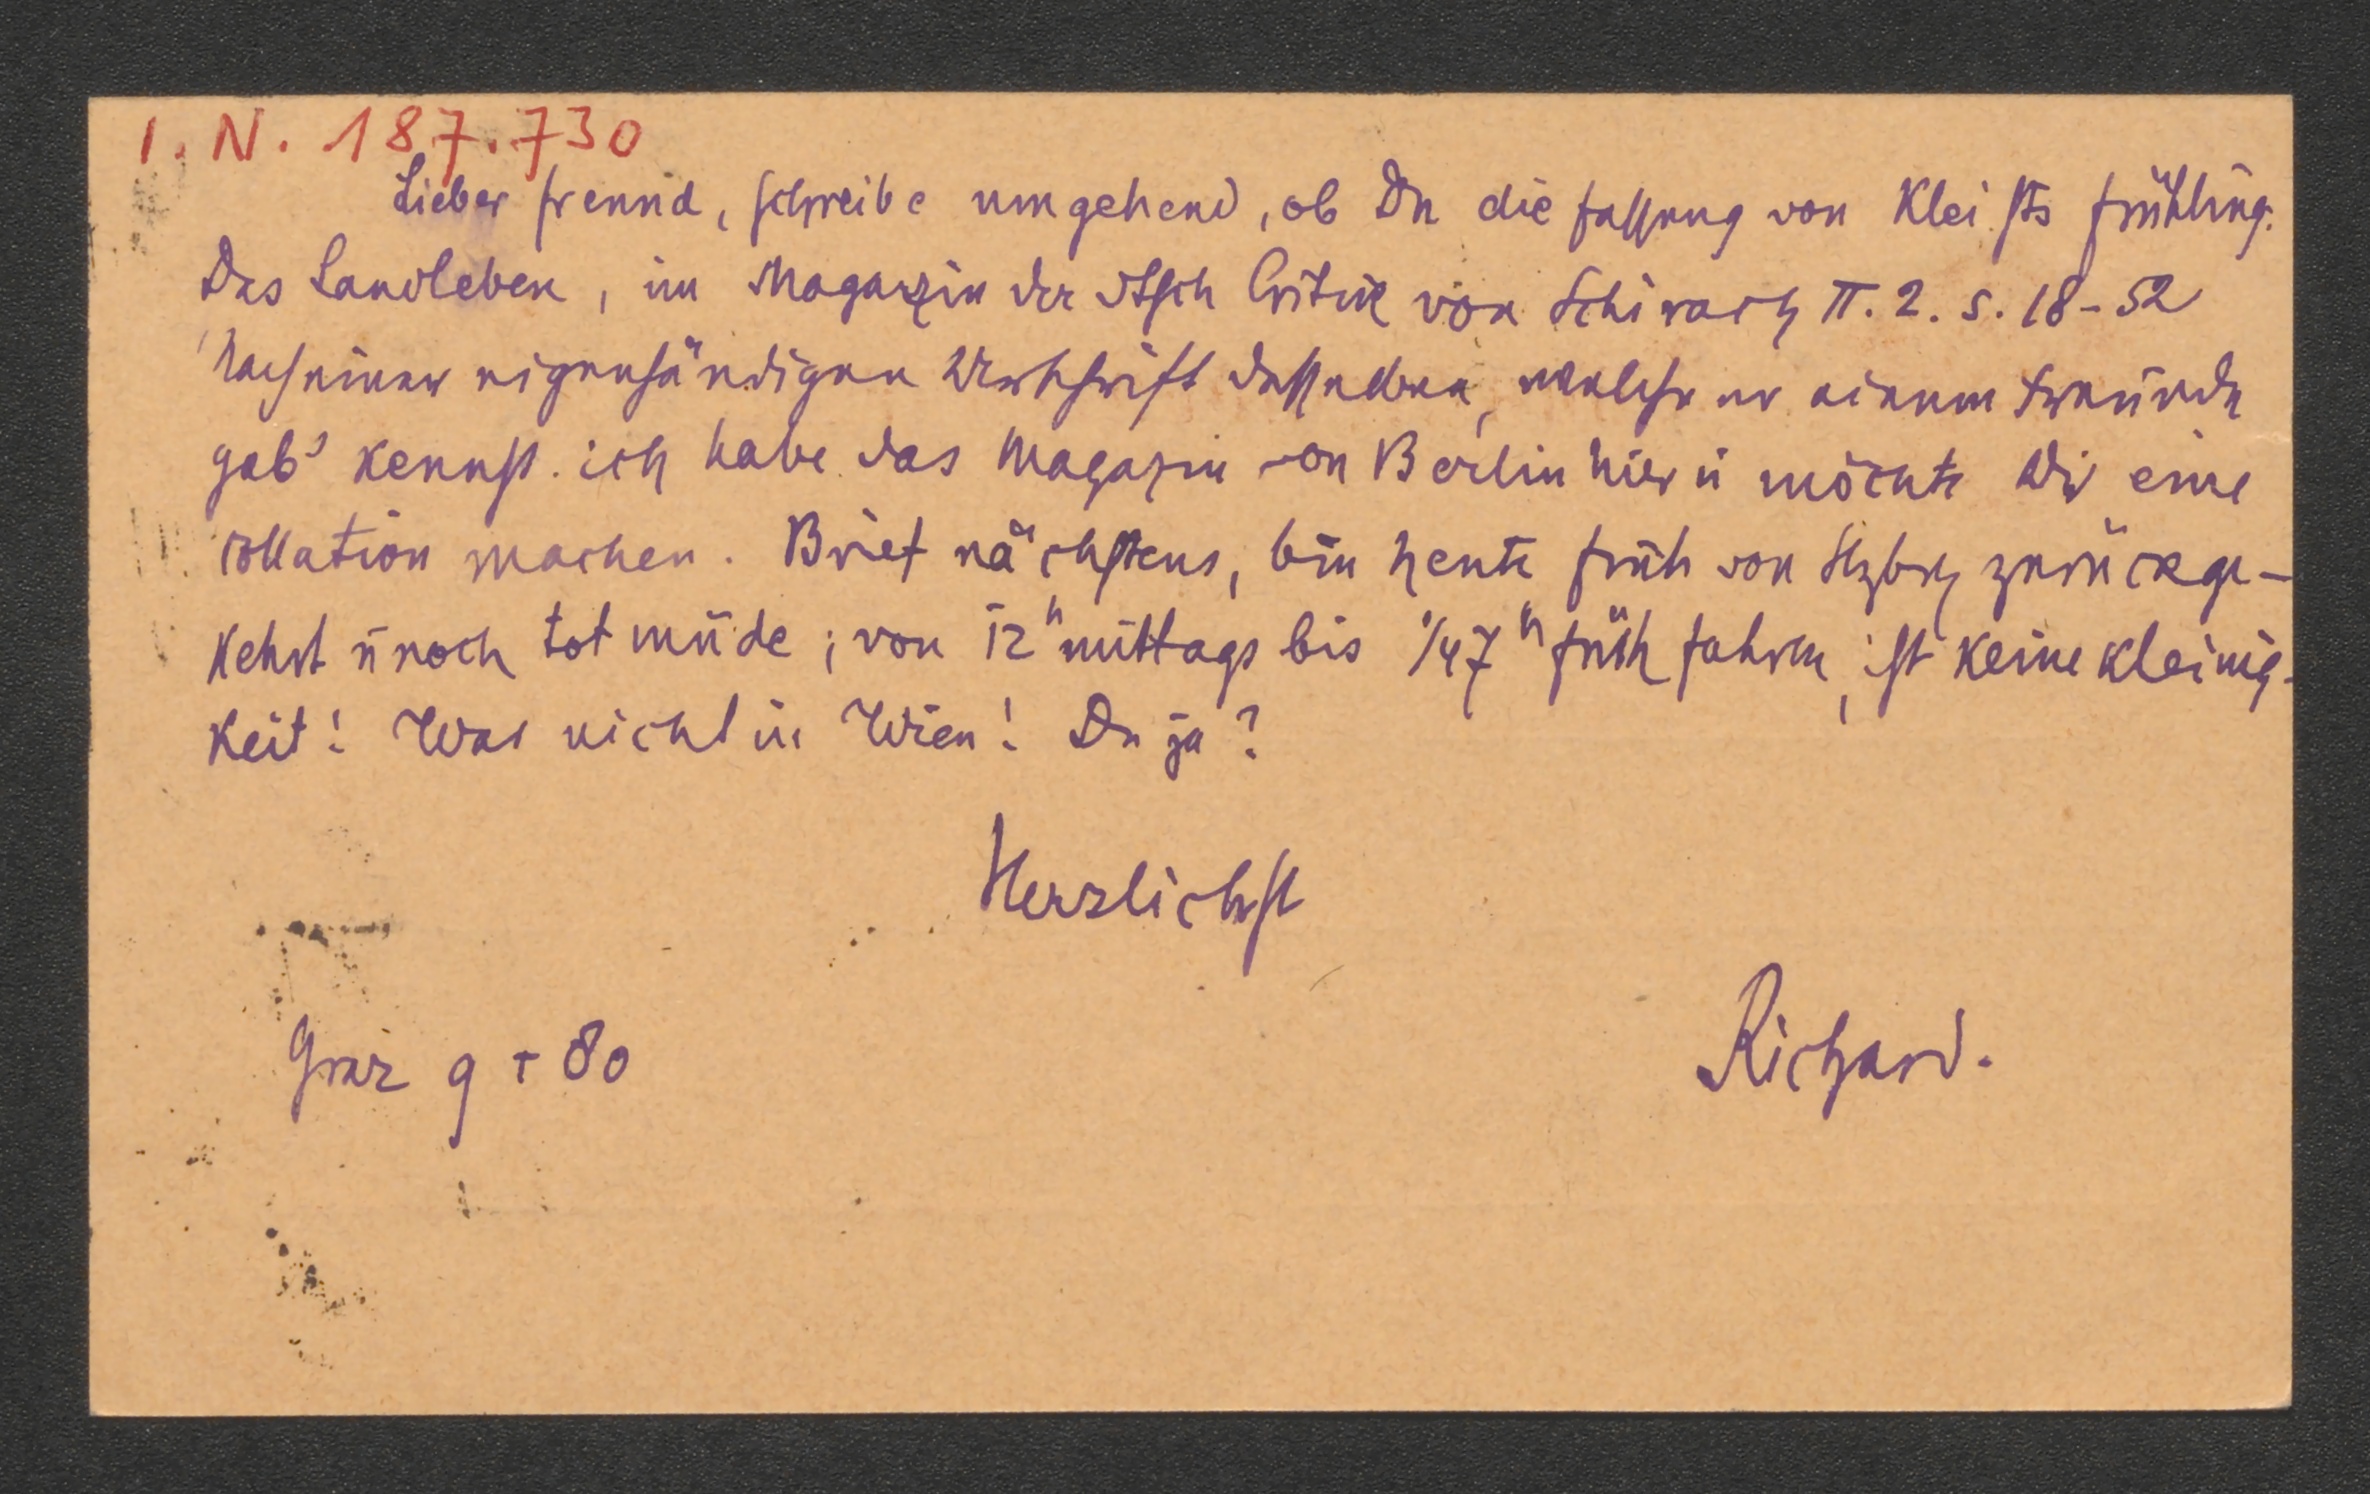 I. N. 187.730
Lieber freund, schreibe umgehend, ob Du die fassung von Kleists frühling.
Das Landleben, im Magazin der dtsch Critik von Schirach II. 2. S. 18-52
'Nach einer eigenhändigen Urschrift desselben, welche er einem Freunde
gab' kennst. ich habe das Magazin von Berlin hier ü möchte Dir eine
collation machen. Brief nächstens, bin heute früh von Slzbrg zurückge-
kehrt ü noch tot müde; von 12h mittags bis 1/47h früh fahren, ist keine kleinig-
keit! War nicht in Wien! Du ja?
Herzlichst
Richard.
Graz 9 80